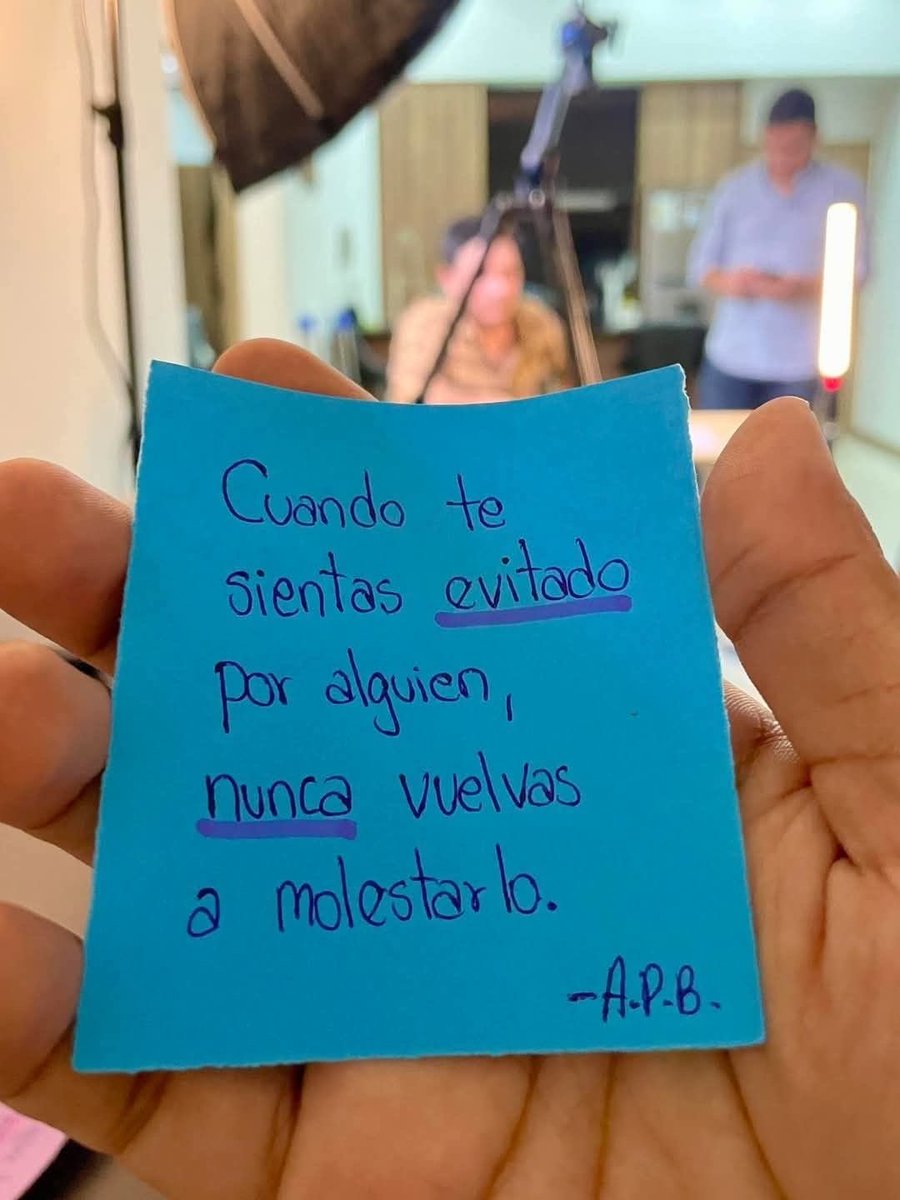 Cuando te
sientas evitado
por alguien,
nunca vuelvas
a molestarlo.
-A.P.B.